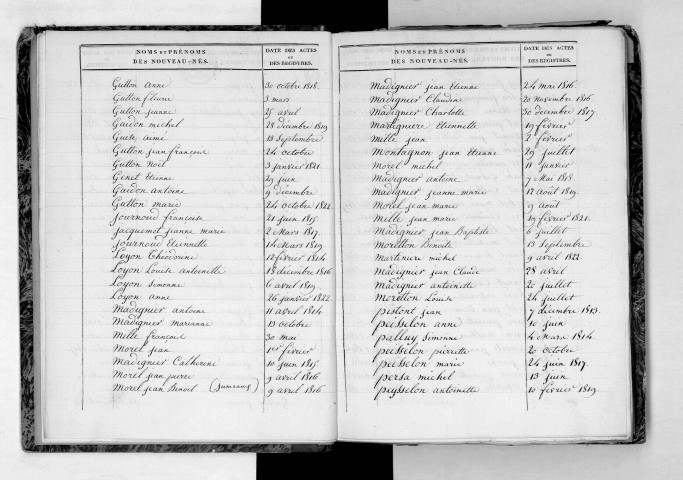 NOMS ET PRÉNOMS DES NOUVEAU-NÉS.
DATE DES ACTES OU DES REGISTRES.
Gutton anne 30 octobre 1818.
Gutton fleurie 3 mars
Gutton jeanne 25 avril
Gaidon michel 28 décembre 1819
Guise aimé 18 Septembre
Gutton jean françois 24 octobre
Gutton Noël 3 janvier 1821.
Genet Etienne 29 juin
Gaidon antoine 9 décembre
Gutton marie 24 octobre 1822
Journoud françoise 21 juin 1815.
Jacquemot jeanne marie 2 Mars 1817.
Journoud Etiennette 14 Mars 1819
Loyon Théodorine 12 février 1814
Loyon Louise antoinette 18 décembre 1816
Loyon Simonne 6 avril 1819.
Loyon anne 26 janvier 1822.
Madignier antoine 11 avril 1814
Madignier marianne 13 octobre
Mille françoise 30 mai
Morel jean 1er février
Madignier Catherine 10 juin 1815.
Morel jean pierre 9 avril 1816
Morel jean Benoit (jumeaux) 9 avril 1816
NOMS ET PRÉNOMS DES NOUVEAU-NÉS.
DATE DES ACTES OU DES REGISTRES.
Madignier jean Etienne 24 mai 1816.
Madignier Claudine 20 Novembre 1816
Madignier Charlotte 30 décembre 1817
Martiniere Etiennette 19 février
Mille jean 2 février
Montagnon jean Etienne 29 juillet
Morel michel 11 janvier
Madignier antoine 7 Mai 1818.
Madignier jeanne marie 12 août 1819.
Morel jean marie 9 août
Mille jean marie 19 février 1821.
Madignier jean Baptiste 6 juillet
Moretton Benoite 13 Septembre
Martiniere michel 9 avril 1822
Madignier jean Claude 28 avril
Madignier antoinette 20 juillet
Moretton Louise 24 juillet
pestont jean 7 décembre 1813.
peisselon anne 10 juin
palluy Simonne 4 Mars 1814.
peisselon pierrette 20 octobre
peisselon marie 24 juin 1817.
persa michel 13 juin
peysselon antoinette 10 février 1819